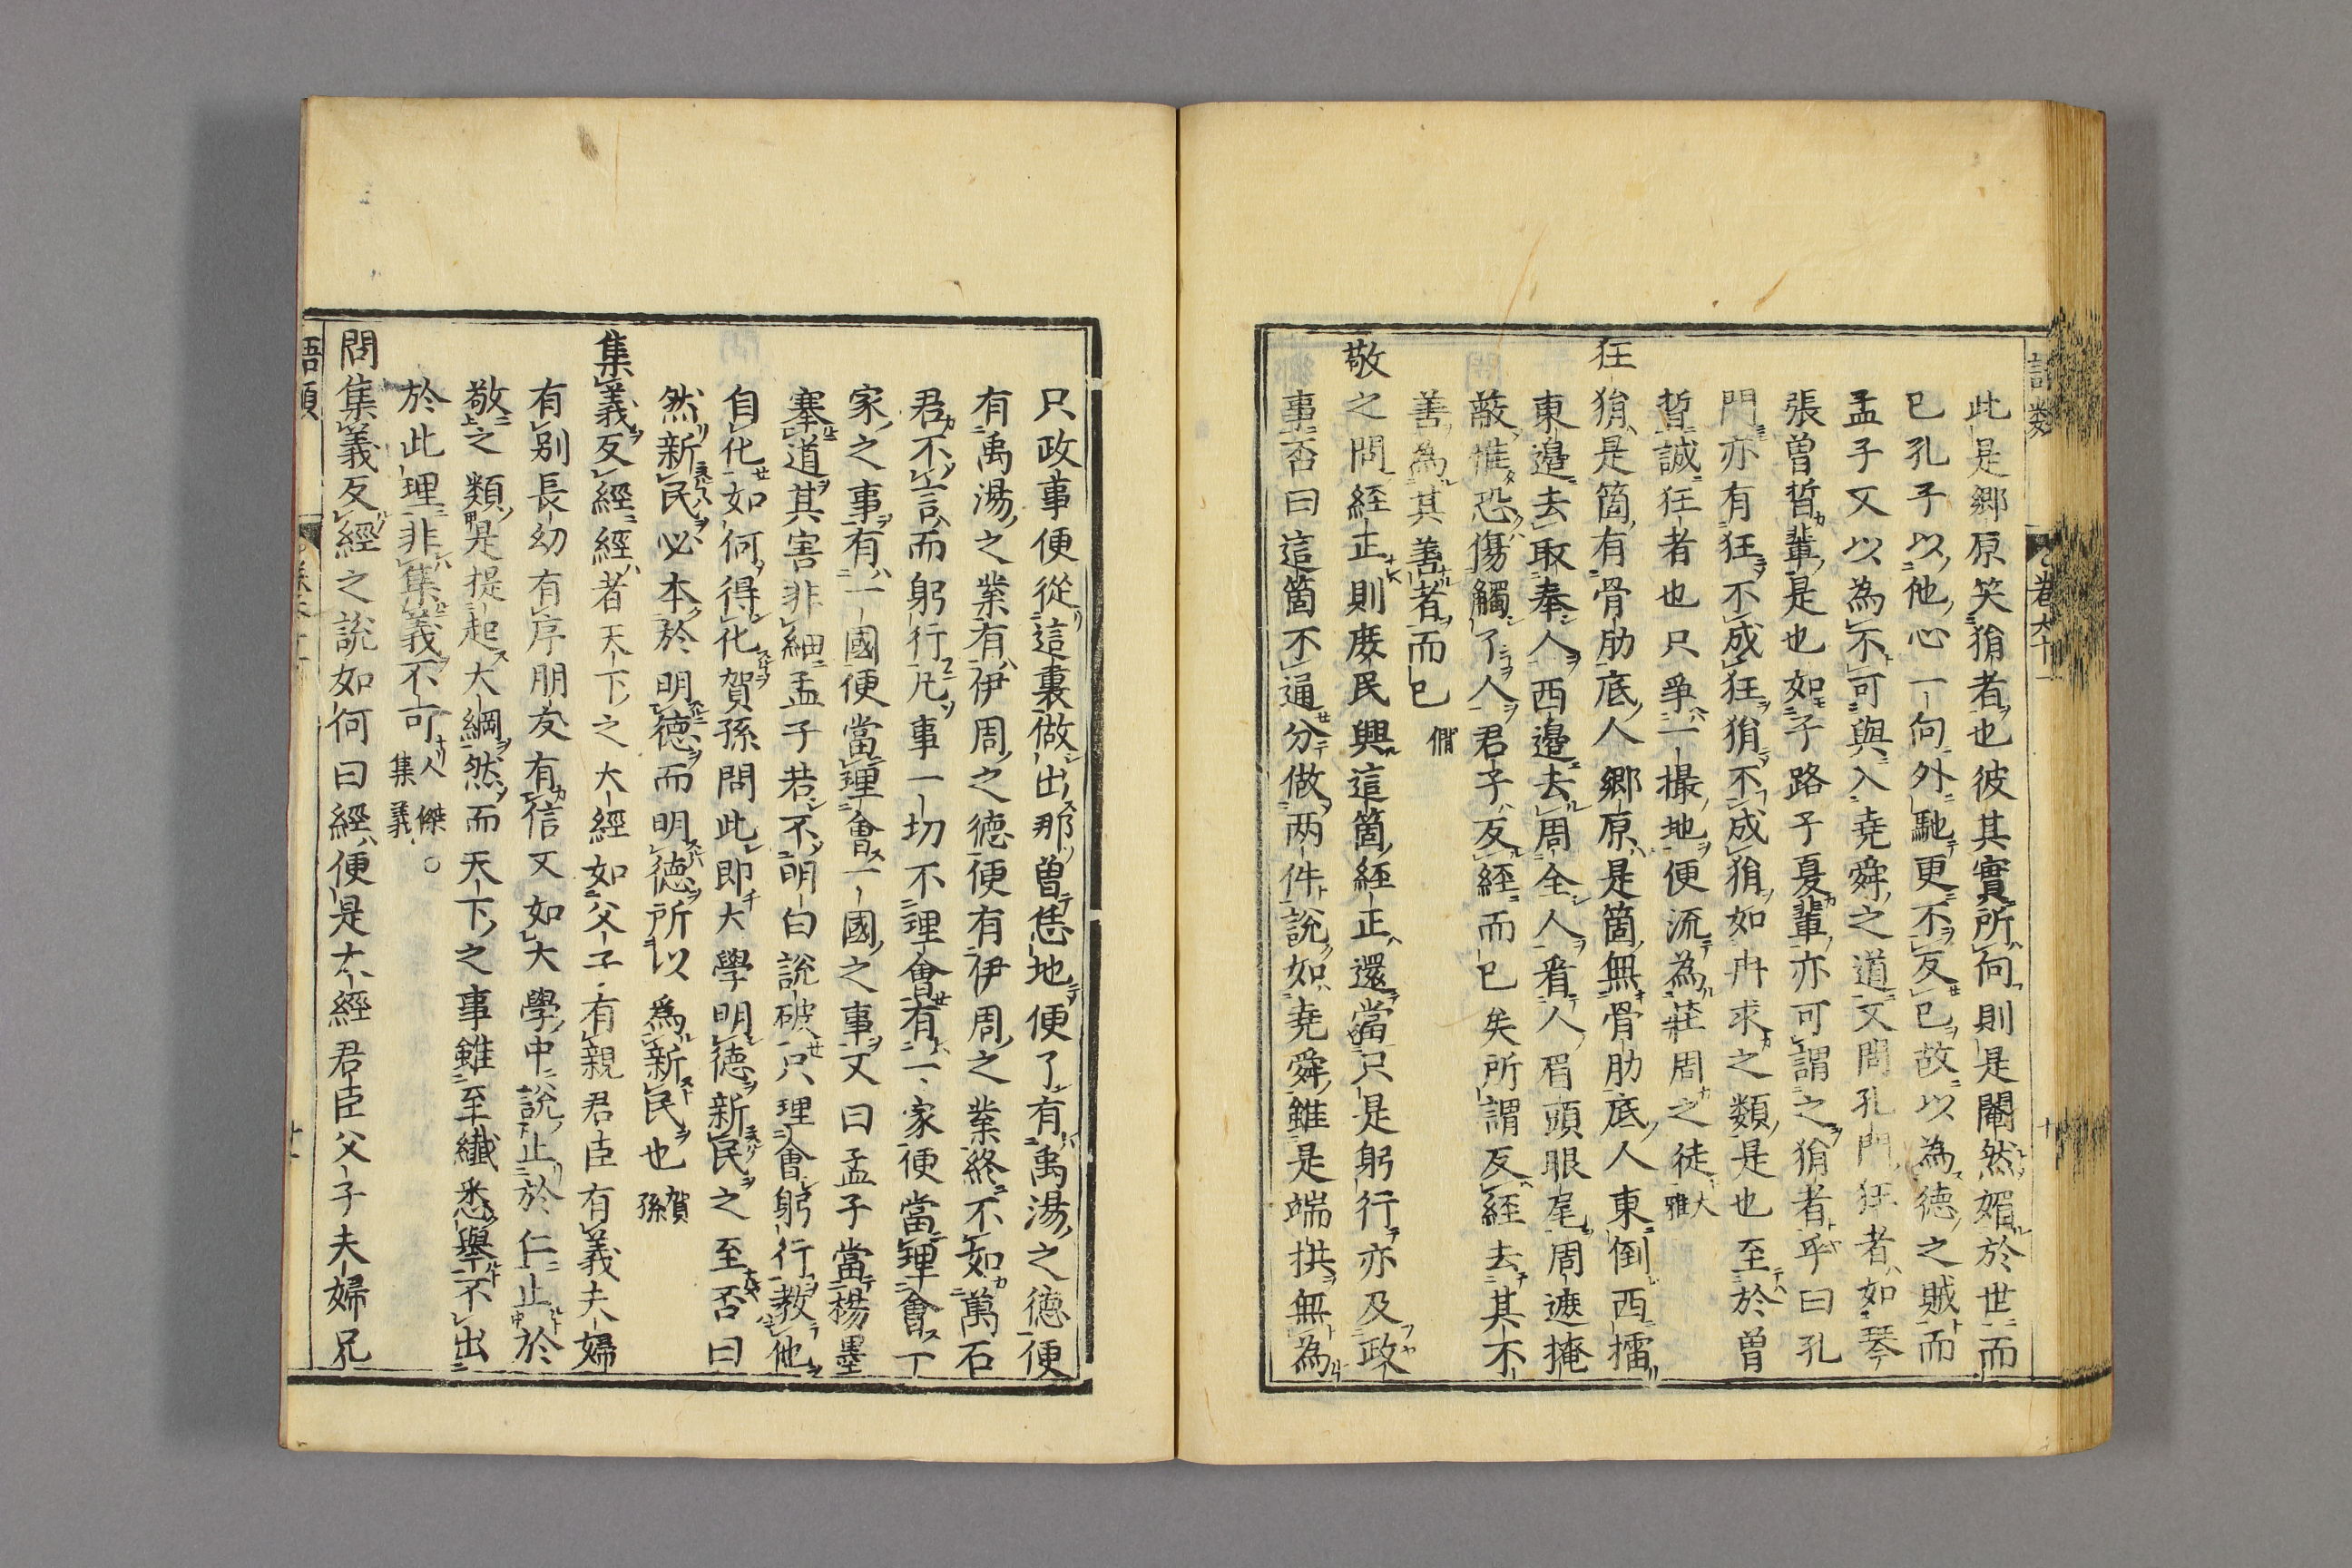 語類
卷六十一
十
此是鄉原笑狷者也彼其實所向則是閹然媚於世而
已孔子以他心一向外馳更不反已故以為德之賊而
孟子又以為不可與入堯舜之道又問孔門狂者如琴
張曾晢輩是也如子路子夏輩亦可謂之狷者乎曰孔
門亦有狂不成狂狷不成狷如冉求之類是也至於曾
晢誠狂者也只爭一撮地便流為莊周之徒 大雅
狂狷是箇有骨肋底人鄉原是箇無骨肋底人東倒西擂
東邉去取奉人西邉去周全人看人眉頭眼尾周遮掩
蔽惟恐傷觸了人君子反經而已矣所謂反經去其不
善為其善者而已 僩
敬之問經正則庻民興這箇經正還當只是躬行亦及政
事否曰這箇不通分做两件說如堯舜雖是端拱無為
只政事便從這裏做出那曽恁地便了有禹湯之德便
有禹湯之業有伊周之德便有伊周之業終不如萬石
君不言而躬行凡事一切不理會有一家便當理會一
家之事有一國便當理會一國之事又曰孟子當楊墨
塞道其害非細孟子若不明白說破只理會躬行教他
自化如何得化賀孫問此即大學明德新民之至否曰
然新民必本於明德而明德所以為新民也 賀孫
集義反經經者天下之大經如父子有親君臣有義夫婦
有别長幼有序朋友有信又如大學中說止於仁止於
敬之類是提起大綱然而天下之事雖至纖悉舉不出
於此理非集義不可 人傑 ○ 集義
問集義反經之說如何曰經便是大經君臣父子夫婦兄
語類
十一